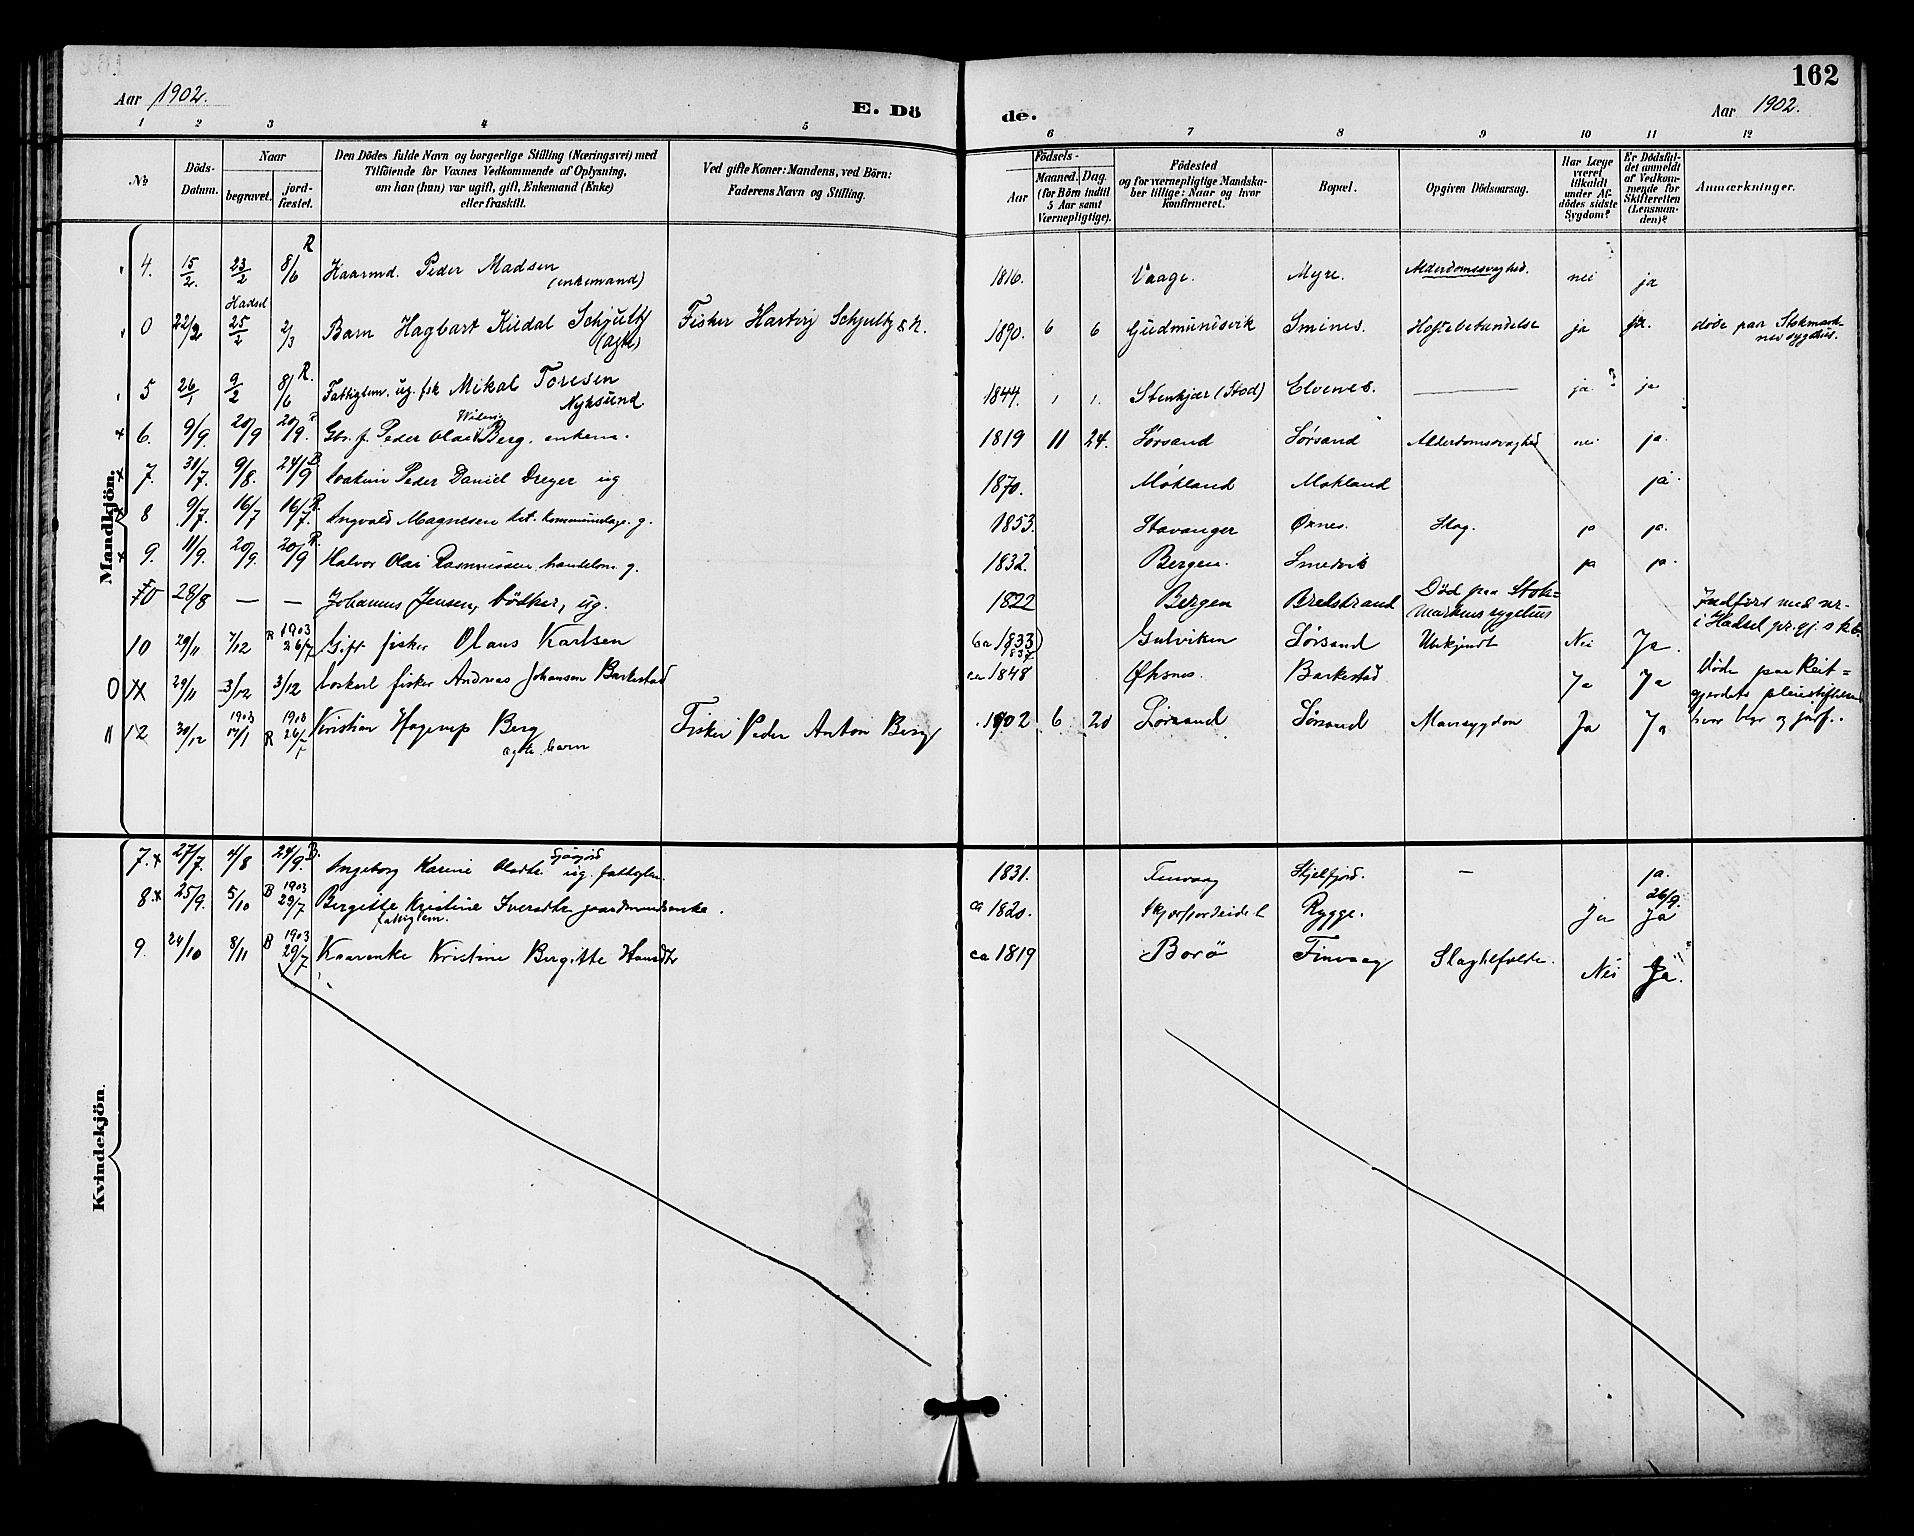 162
Aar 1902.
E. Dö
de.
Aar 1902.
1 2 3 4 5 6 7 8 9 10 11 12
No
Döds-Datum.
Naar
begravet.
jord-fæstet.
Den Dödes fulde Navn og borgerlige Stilling (Næringsvei) med
Tilföiende for Voxnes Vedkommende af Oplysning,
om han (hun) var ugift, gift, Enkemand (Enke)
eller fraskilt.
Ved gifte Koner: Mandens, ved Börn:
Faderens Navn og Stilling.
Födsels-
Aar
Maaned. Dag.
(for Börn indtil
5 Aar samt
Værnepligtige).
Födested
og for værnepligtige Mandska-
ber tillige: Naar og hvor
konfirmeret.
Bopæl.
Opgiven Dödsaarsag.
Har Læge
været
tilkaldt
under Af-
dödes sidste
Sygdom?
Er Dödsfal-
det anmeldt
af Vedkom-
mende for
Skifteretten
(Lensman-
den)?
Anmærkninger.
Mandkjön.
4. 15/2. 23/2 8/6 R Kaarmd. Peder Madsen (enkemand) 1816. Vaage. Myre. Alderdomssvaghed. nei ja
0 22/2 Hadsel 25/2 2/3 Barn Hagbart Kildal Schjultz (ægte) Fisker Hartvig Schjultz 1890. 6 6 Gudmundsvik Smines. Hoftebetændelse ja ja. døde paa Stokmark-
nes sygehus.
5 26/1 9/2 8/6 R. Fattiglem. ug. fsk Mikal Toresen Nyksund 1844. 1 1. Stenkjær (Stod) Elvenes. — ja ja
6. 9/9. 20/9 20/9. Peder Olai Berg. enkem. 1819 11 24. Sørsand Sørsand Alderdomssvaghed nei ja.
7. 31/7. 9/8. 24/9 B Peder Daniel Dreyer ug 1870. Mokland Mokland ja
8 9/7. 16/7 16/7. R. Ingvald Magnesen kommunelæge. g. 1853. Stavanger Øxnes. Slag. ja ja.
9. 11/9. 20/9. 20/9 R. Halvor Olai Rasmussen handelsm. g. 1832. Bergen. Smedvik ja ja.
28/8 — — Johannes Jensen, bødker, ug. 1822 Bergen Bredstrand Død paa Stok-
markens sygehus Indført med nr-
i Hadsel
10 29/11 7/12 R 1903 26/7 Gift fisker Olaus Karlsen Ca 1833 1837 Gulviken Sørsand Ubekjendt Nei Ja.
0 29/11 3/12 3/12 fisker Andreas Johansen Barkestad ca 1848 Øksnes. Barkestad Ja Ja Døde paa Reit-
gjerdets pleiestiftelse
hvor
12 30/12 1903 1903 R Kristian Hagerup Berg ægte barn Fisker Peder Anton Berg 1902 6 20 Sørsand Sørsand Mavesygdom Ja Ja
Kvindekjön.
7. 27/7. 4/8 24/9. B. Ingeborg Karine ug. fattiglem. 1831. Finvaag Skjelfjord. — ja.
26/9.
8 25/9. 5/10 B 1903 29/7 Bergitte Kristine gaardmandsenke. fattiglem. ca 1820. Rygge. Ja Ja
9. 24/10 8/11 B 1903 29/7 Kaarenke Kristine Bergitte Hansdtr ca 1819 Borø Finvaag Slagtilfælde. Nei Ja.